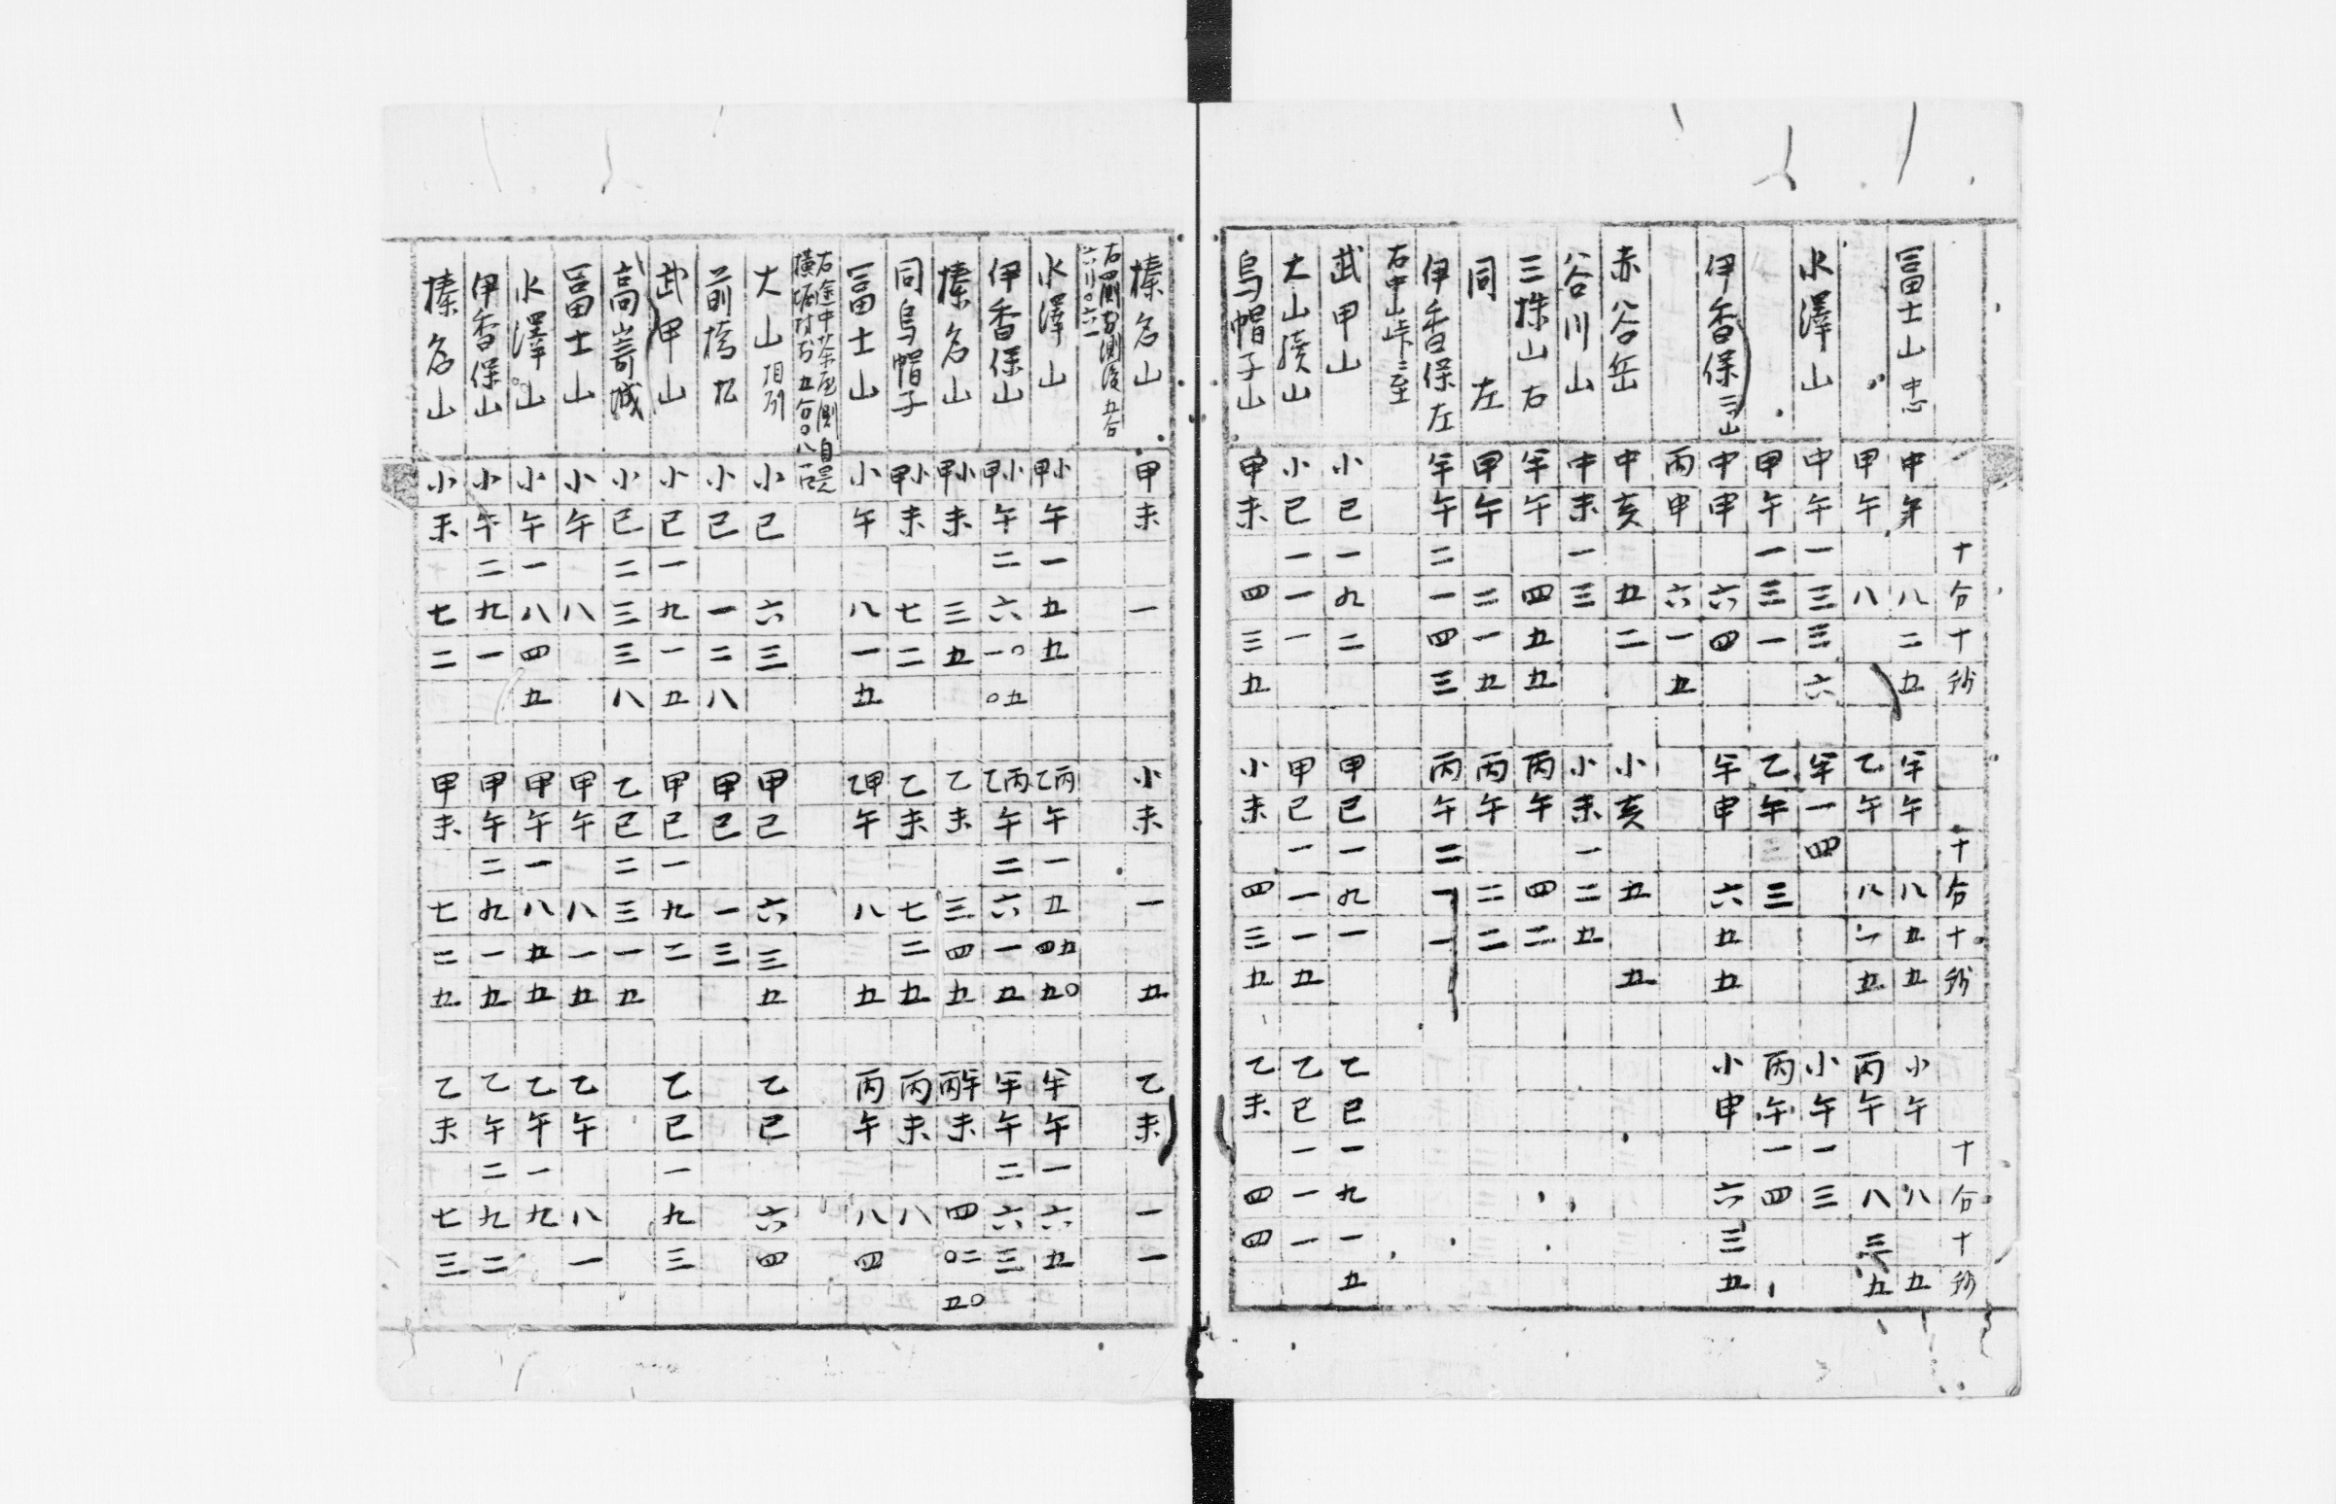 十分十秒 十分十秒 十分十秒
冨士山中心 中午八二五 午午八五五 小午八五
甲午八 乙午八一五 丙午八三五
水澤山 中午一三三六 午一四 小午一三
甲午一三一 乙午三 丙午一四
伊香保二山 中申六四 午申六五五 小申六三五
丙申六一五
赤谷岳 中亥五二 小亥五五
谷川山 中未一三 小未一二五
三株山右 午午四五五 丙午四二
同左 甲午二一五 丙午二二
伊香保左 午午二一四三 丙午二一一
右中山峠ニ至
武甲山 小巳一九二 甲巳一九一 乙巳一九一五
大山續山 小巳一一一 甲巳一一一五 乙巳一一一
烏帽子山 甲未四三五 小未四三五 乙未四四
榛名山 甲未一 小未一五 乙未一一
水澤山 甲小午一五五 乙丙午一五四五五〇 午午一六五
伊香保山 甲小午二六一〇〇五 乙丙午二六一五 午午二六三
榛名山 甲小未三五 乙未三四五 丙午未四〇二五〇
同烏帽子 甲小未七二 乙未七二五 丙未八
冨士山 小午八一五 乙甲午八五 丙午八四
大山 小巳六三 甲巳六三五 乙巳六四
小巳一二八 甲巳一三
武甲山 小巳一九一五 甲巳一九二 乙巳一九三
小巳二三三八 乙巳二三一五
冨士山 小午八 甲午八一五 乙午八一
水澤山 小午一八四五 甲午一八五五 乙午一九
伊香保山 小午二九一 甲午二九一五 乙午二九二
榛名山 小未七二 甲未七二五 乙未七三